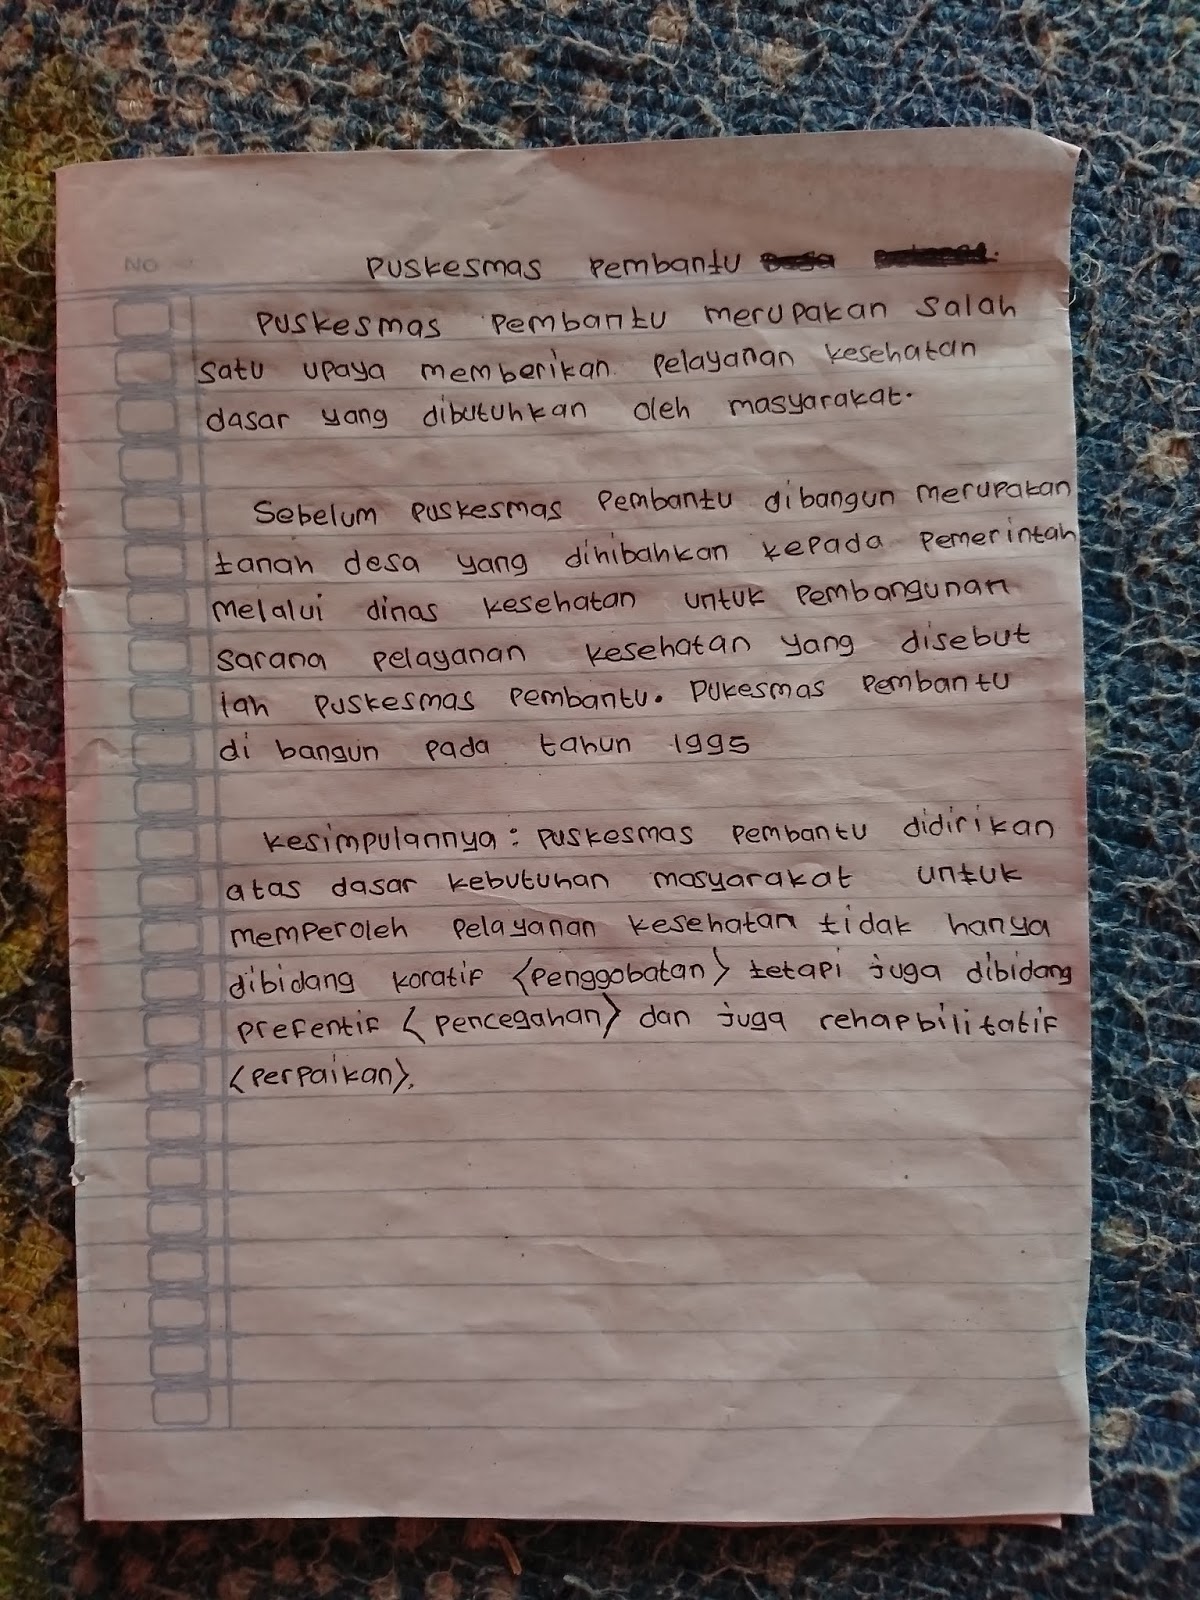 NO
Puskesmas Pembantu
Puskesmas Pembantu merupakan salah
satu upaya memberikan pelayanan kesehatan
dasar yang dibutuhkan oleh masyarakat.
Sebelum Puskesmas Pembantu dibangun merupakan
tanah desa yang dihibahkan kepada pemerintah
melalui dinas kesehatan untuk pembangunan
sarana pelayanan kesehatan yang disebut
lah puskesmas pembantu. Pukesmas pembantu
di bangun pada tahun 1995
Kesimpulannya : Puskesmas Pembantu didirikan
atas dasar kebutuhan masyarakat untuk
memperoleh pelayanan kesehatan tidak hanya
dibidang koratif <penggobatan> tetapi juga dibidang
prefentif <pencegahan> dan juga rehapbilitatif
<perpaikan>.